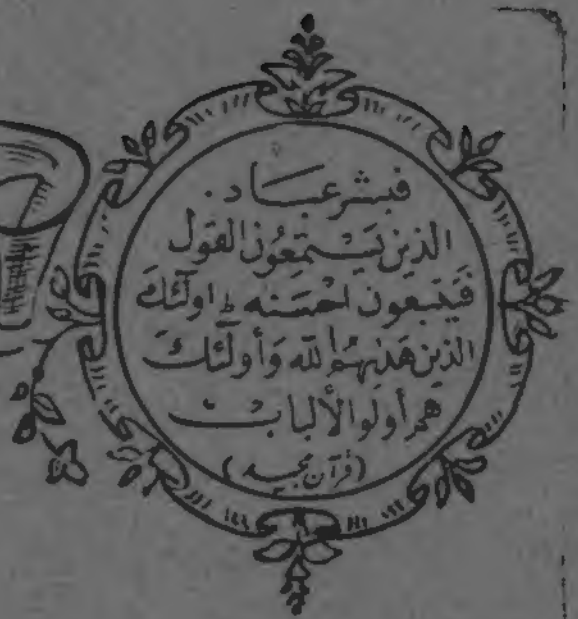 فبشر عبـــاد .
الذين يَسْتَمِعُونَ القول
فَيَتَّبِعون احْسَنه ط اولٓئكَ
الذين هَدٰىهُمُ الله وَأُولٓئكَ
هم أولوا الألباب
(قرآن مجید)